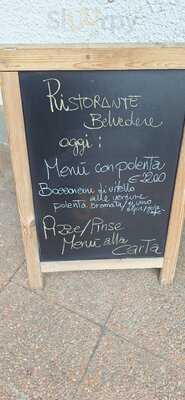 Ristorante
Belvedere
oggi:
Menú con polenta
€ 22.00
Bocconcini di vitello
alle verdure
polenta bramata/
Pizze/Pinse
Menú alla
Carta